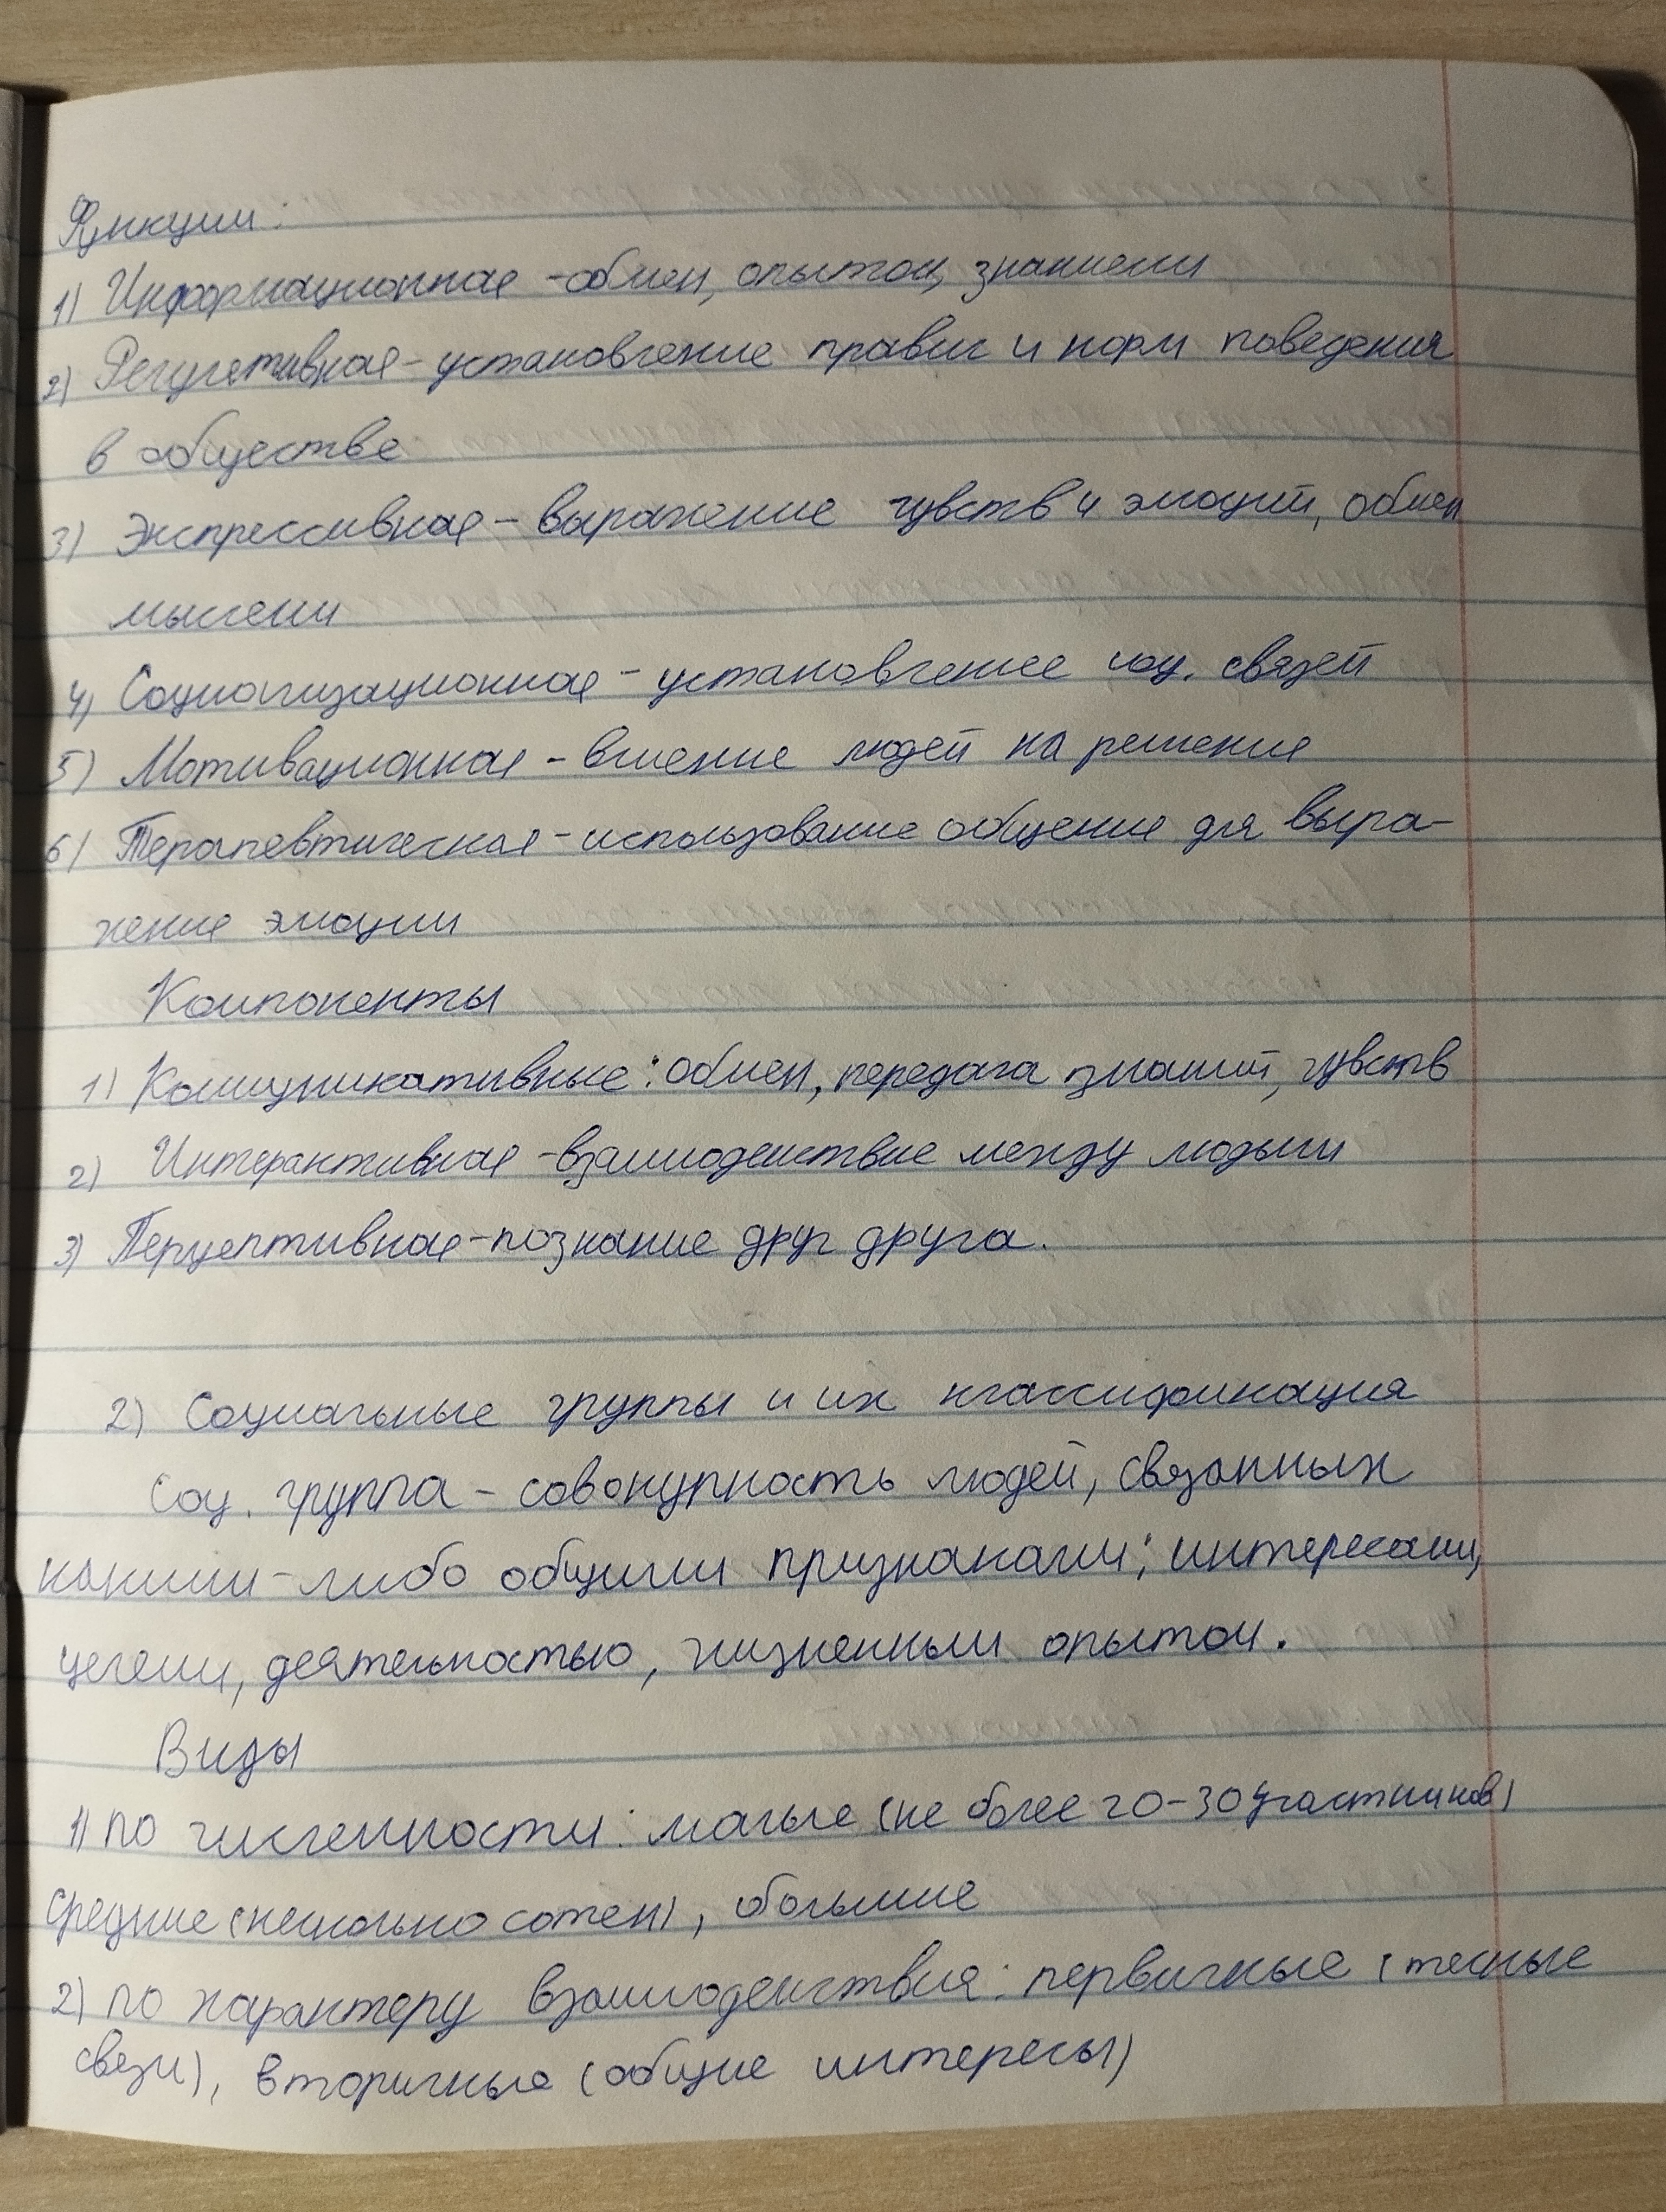 Функции:
1) Информационная - обмен, опытом, знаниями
2) Регулетивная - установление правил и норм поведения
в обществе
3) Экспрессивная - выражение чувств и эмоций, обмен
мыслени
4) Социолизационная - установление соц. связей
5) Мотивационная - влиение людей на решение
6) Терапевтическая - использование общение для выра-
жение эмоции
Компоненты
1) Коммуникативные: обмен, передача знаний, чувств
2) Интерактивная - взаимодействие между людьми
3) Перцептивная - познание друг друга.
2) Социальные группы и их классификация
Соц. группа - совокупность людей, связанных
какими-либо общими признаками: интересами,
целями, деятельностью, жизненным опытом.
Виды
1) по численности: малые (не более 20-30 участников)
средние (несколько сотен), большие
2) по характеру взаимодействия: первичные (тесные
связи), вторичные (общие интересы)